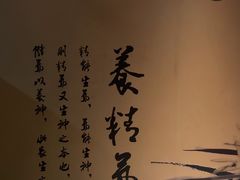 養精氣
精能生氣、氣能生神、
則精氣又生神之本也、
儲氣以養神、此長生